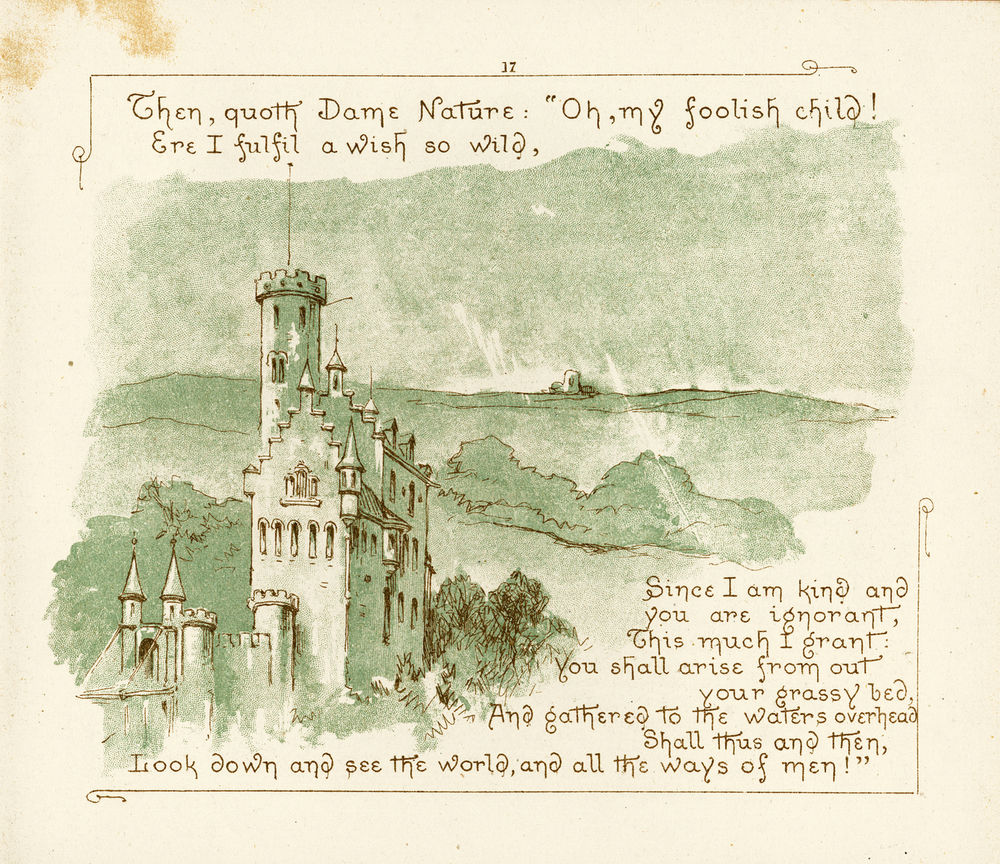 17
Then, quoth Dame Nature: "Oh, my foolish child!
Ere I fulfil a wish so wild,
Since I am kind and
you are ignorant,
This much I grant:
You shall arise from out
your grassy bed,
And gathered to the waters overhead
Shall thus and then,
Look down and see the world, and all the ways of men!"